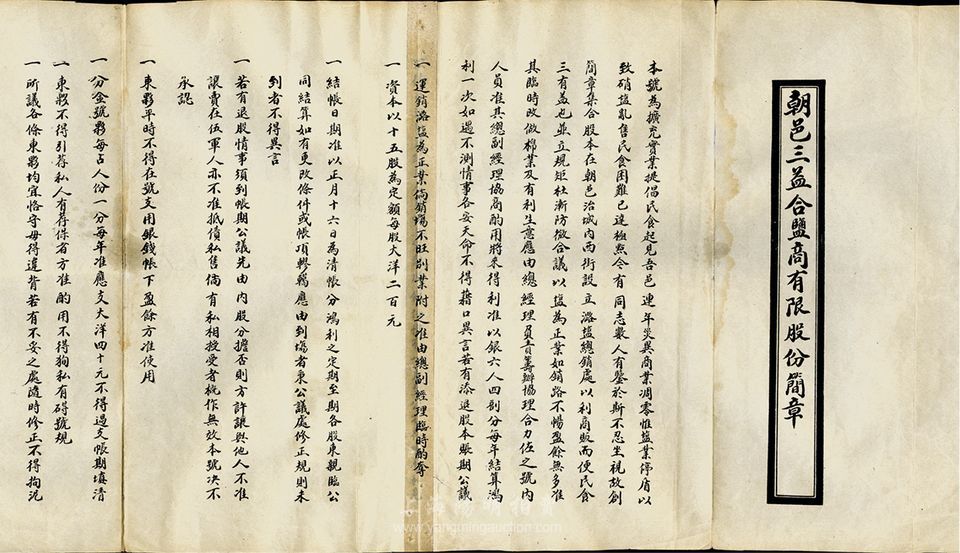 朝邑三益合鹽商有限股份簡章
本號為擴充實業提倡民食起見吾邑連年災異商業凋零惟鹽業停廢以
致硝鹽亂售民食困難已達極點今有同志數人有鑒於斯不忍坐視故創
簡章集合股本在朝邑治城內西街設立潞鹽總銷處以利商販而便民食
三有益也並立規矩杜漸防微合議以鹽為正業如銷路不暢盈餘無多准
其臨時改做棉業及有利生意應由總經理員責籌辦協理合力佐之號內
人員准其總副經理協商酌用將來得利准以銀六人四剖分每年結算鴻
利一次如遇不測情事各安天命不得藉口異言若有添退股本賬期公議
一運銷潞鹽為正業倘銷場不旺別業附之准由總副經理臨時酌奪
一資本以十五股為定額每股大洋二百元
一結帳日期准以正月十六日為清帳分鴻利之定期至期各股東親臨公
同結算如有更改條件或帳項轇轕應由到場者東公議處修正規則未
到者不得異言
一若有退股情事須到帳期公議先由內股分擔否則方許讓與他人不准
讓賣在伍軍人亦不准抵債私售倘有私相授受者統作無效本號決不
承認
一東夥平時不得在號支用銀錢帳下盈餘方准使用
一分金號夥每占人份一分每年准應支大洋四十元不得過支帳期填清
一東夥不得引荐私人有荐保者方准酌用不得狥私有碍號規
一所議各條東夥均宜恪守毋得違背若有不妥之處隨時修正不得拘泥
www.yangmingauction.com